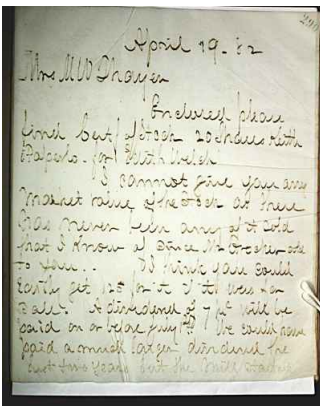 290
April 19. 82
Mrs M W Thayer
Enclosed please
find Cert of Stock 20 Shares Keith
Paper Co. for Edith Welsh
I cannot give you any
market value of the Stock as there
has never been any of it sold
that I know of since Mr Crocker
to you. I think you could
easily get 125 for it if it was for
Sale. A dividend of 7 pc will be
paid on or before July We could have
paid a much larger dividend the
last two years but the Mill